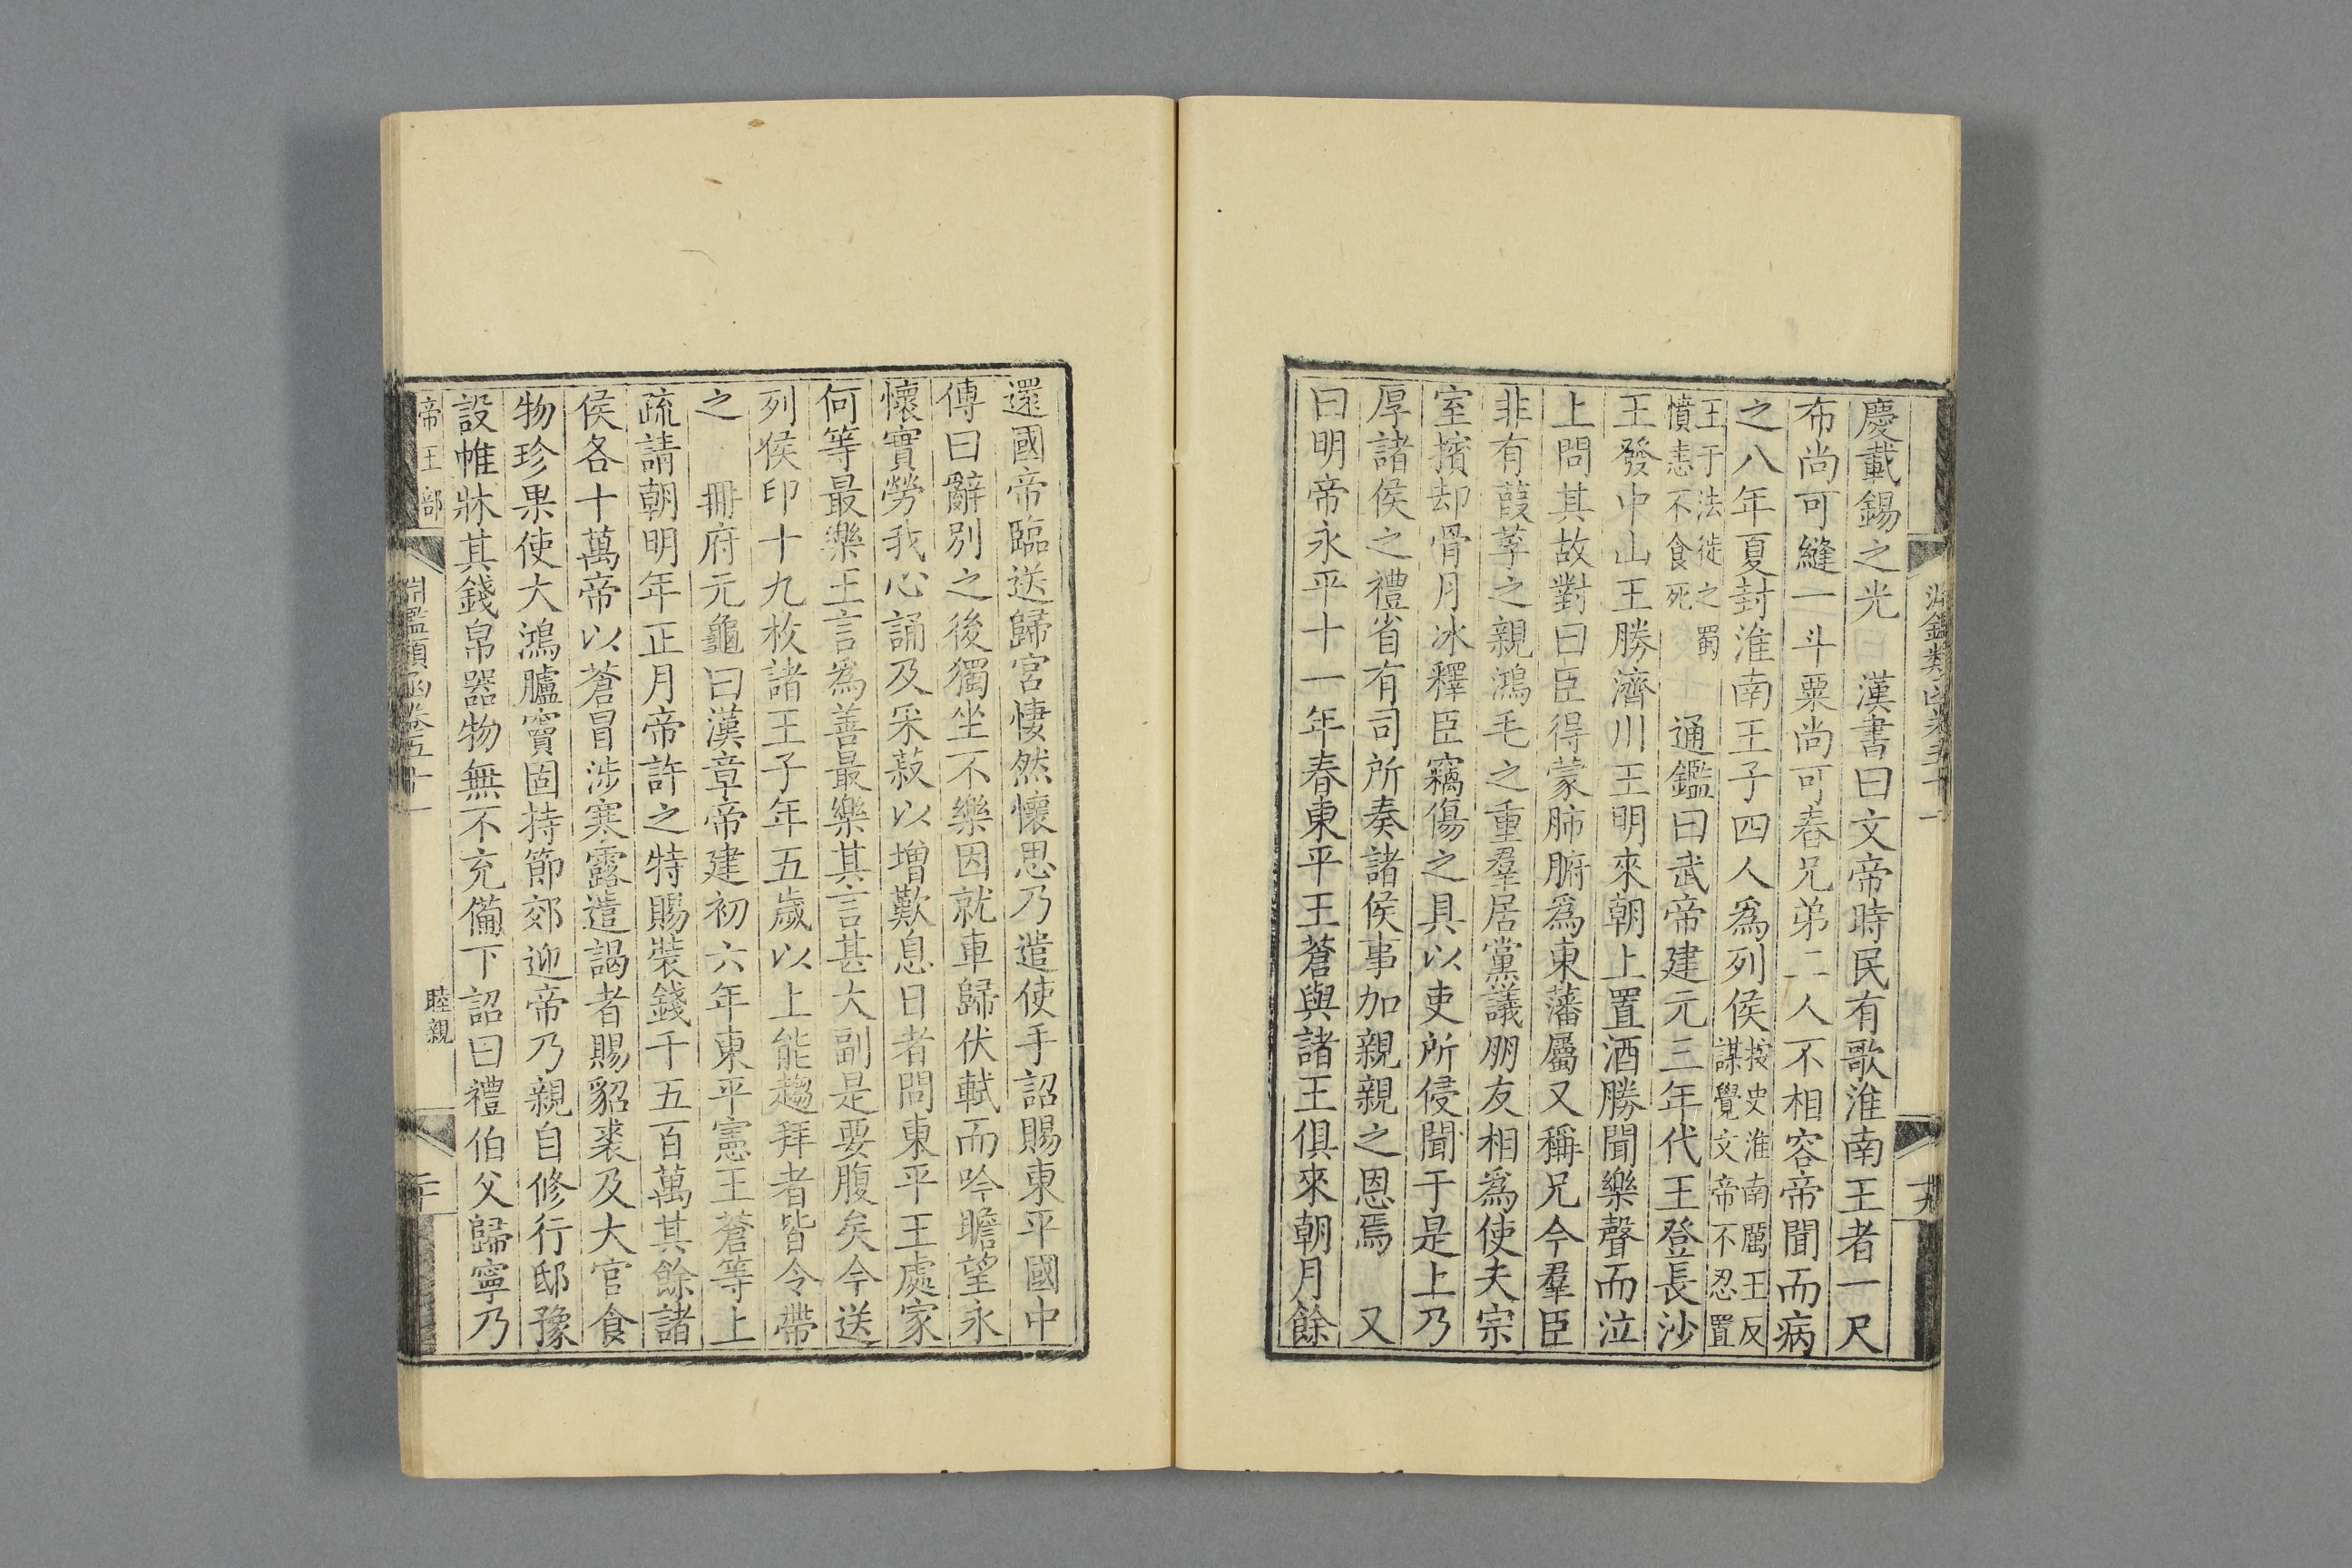 淵鑑類函卷五十一
十九
慶載錫之光　漢書曰文帝時民有歌淮南王者一尺
布尚可縫一斗粟尚可舂兄弟二人不相容帝聞而病
之八年夏封淮南王子四人爲列侯按史淮南厲王反謀覺文帝不忍置
王于法徙之蜀憤恚不食死　通鑑曰武帝建元三年代王登長沙
王發中山王勝濟川王明來朝上置酒勝聞樂聲而泣
上問其故對曰臣得蒙肺腑爲東藩屬又稱兄今羣臣
非有葭莩之親鴻毛之重羣居黨議朋友相爲使夫宗
室擯却骨月冰釋臣竊傷之具以吏所侵聞于是上乃
厚諸侯之禮省有司所奏諸侯事加親親之恩焉　又
曰明帝永平十一年春東平王蒼與諸王俱來朝月餘
還國帝臨送歸宮悽然懷思乃遣使手詔賜東平國中
傅曰辭別之後獨坐不樂因就車歸伏軾而吟瞻望永
懷實勞我心誦及采菽以增歎息日者問東平王處家
何等最樂王言爲善最樂其言甚大副是要腹矣今送
列侯印十九枚諸王子年五歲以上能趨拜者皆令帶
之　冊府元龜曰漢章帝建初六年東平憲王蒼等上
疏請朝明年正月帝許之特賜裝錢千五百萬其餘諸
侯各十萬帝以蒼冒涉寒露遣謁者賜貂裘及大官食
物珍果使大鴻臚竇固持節郊迎帝乃親自修行邸豫
設帷牀其錢帛器物無不充備下詔曰禮伯父歸寧乃
帝王部
淵鑑類函卷五十一
睦親
二十